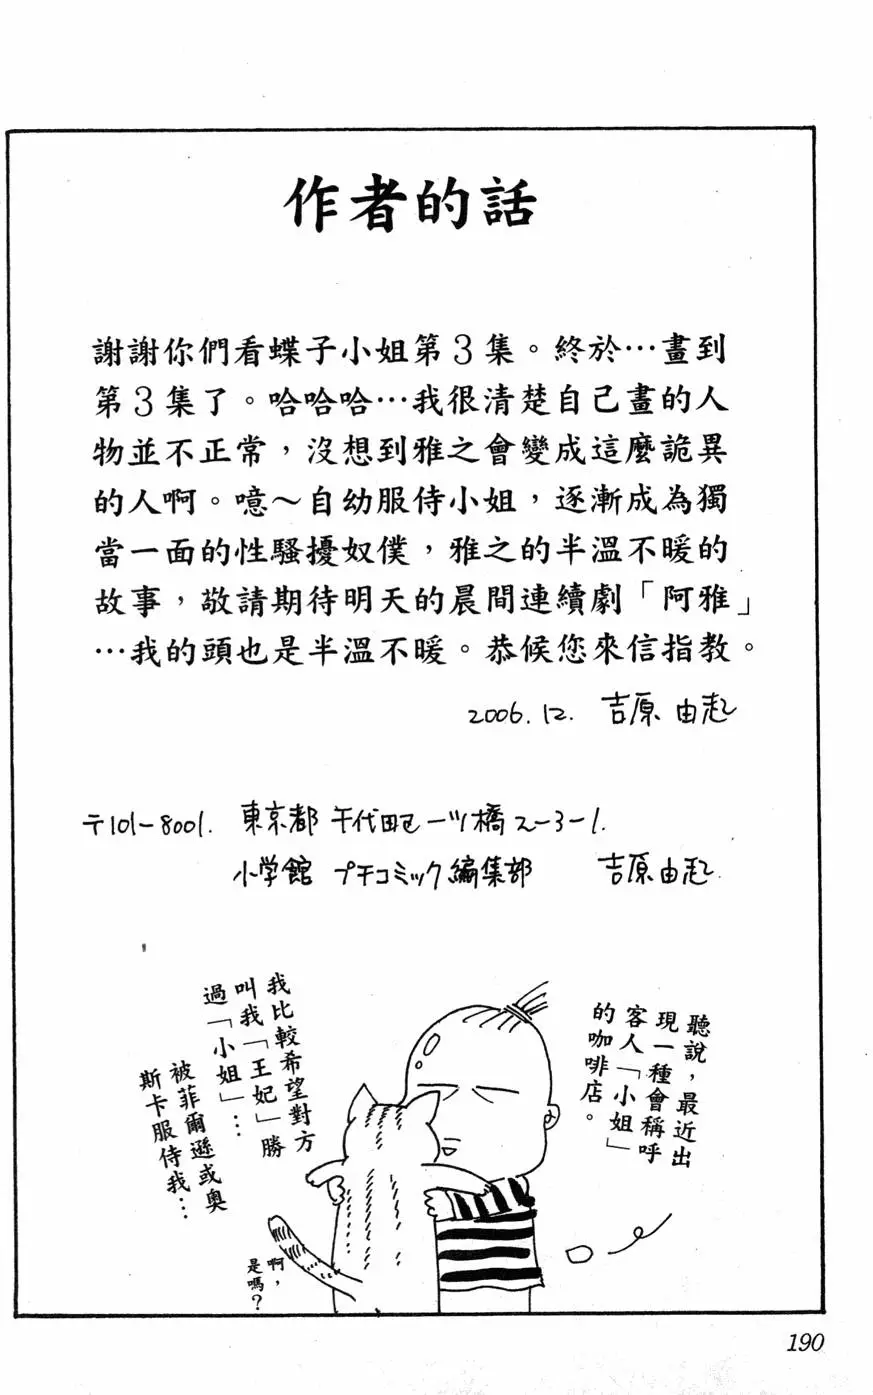 作者的話
謝謝你們看蝶子小姐第3集。終於…畫到
第3集了。哈哈哈…我很清楚自己畫的人
物並不正常，沒想到雅之會變成這麼詭異
的人啊。噫～自幼服侍小姐，逐漸成為獨
當一面的性騷擾奴僕，雅之的半溫不暖的
故事，敬請期待明天的晨間連續劇「阿雅」
…我的頭也是半溫不暖。恭候您來信指教。
2006.12. 吉原由起
〒101-8001. 東京都千代田区一ツ橋2-3-1.
小学館 プチコミック編集部 吉原由起
聽說，最近出
現一種會稱呼
客人「小姐」
的咖啡店。
我比較希望對方
叫我「王妃」勝
過「小姐」…
被菲爾遜或奧
斯卡服侍我…
啊，
是嗎？
190